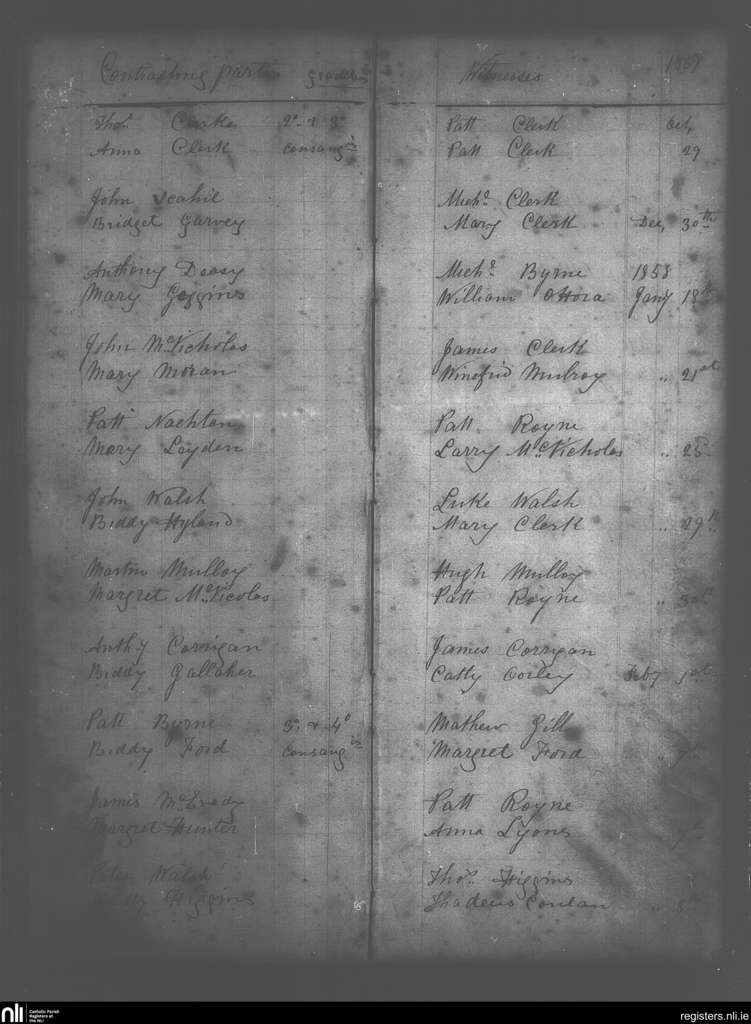 Contracting parties grades Witnesses 1857
Thos. Clarke 2o & 3o Patt Clerk Oct,
Anna Clerk Consangis Patt Clerk 29
John Scahil Michl Clerk
Bridget Garvey Mary Clerk Dec, 30th
Anthony Deasy Michl Byrne 1858
Mary Goggins William OHora Jany 18th
John McNicholas James Clerk
Mary Moran Winefrid Mulroy " 21st
Patt Naehten Patt Royne
Mary Leyden Larry McNicholas " 25
John Walsh Luke Walsh
Biddy Hyland Mary Clerk " 29th
Martin Mulloy Hugh Mulloy
Margret McNicolas Patt Royne " 30th
Anthy Corrigan James Corrygan
Biddy Gallaher Catty Corley Feby 1st
Patt Byrne 3o & 4o Mathew Gill
Biddy Ford Consangis Margret Ford "
James McEvady Patt Royne
Margret Hunter Anna Lyons
Walsh Thos. Higgins
Higgins Thadeus Conlan " 8th
nli Catholic Parish Registers at the NLI registers.nli.ie